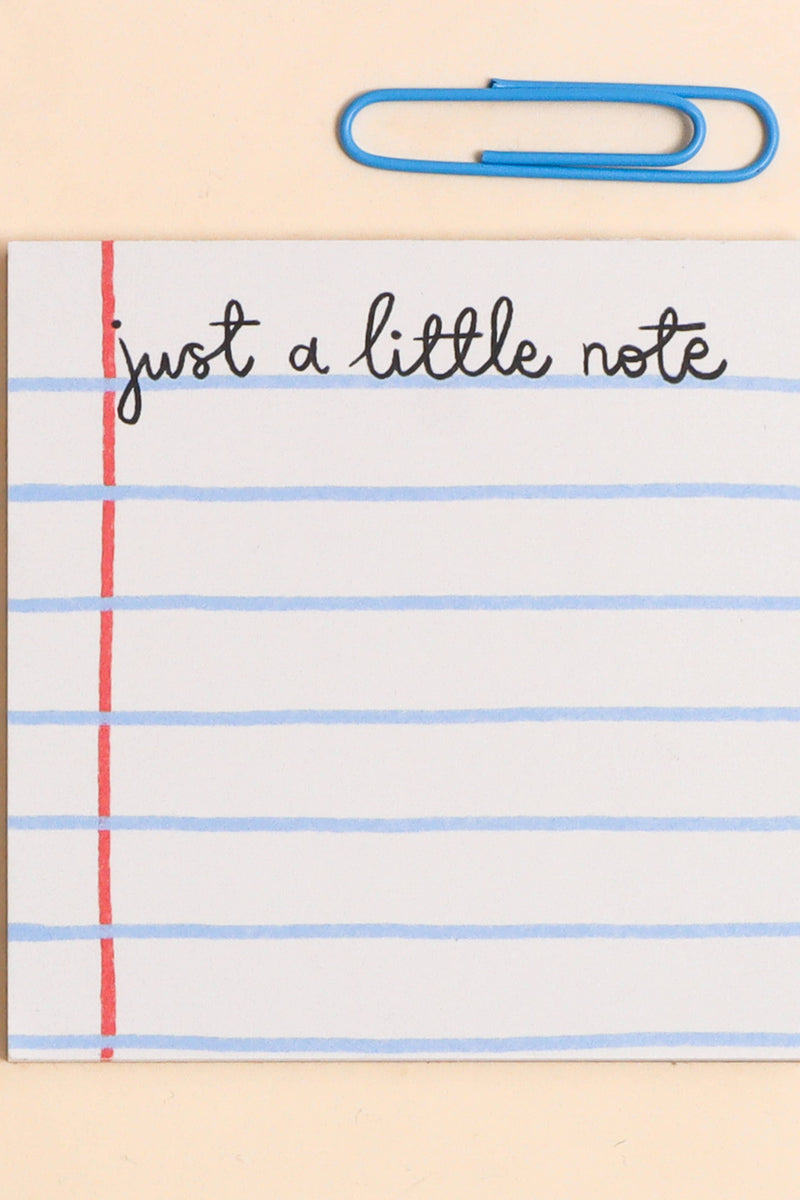 just a little note